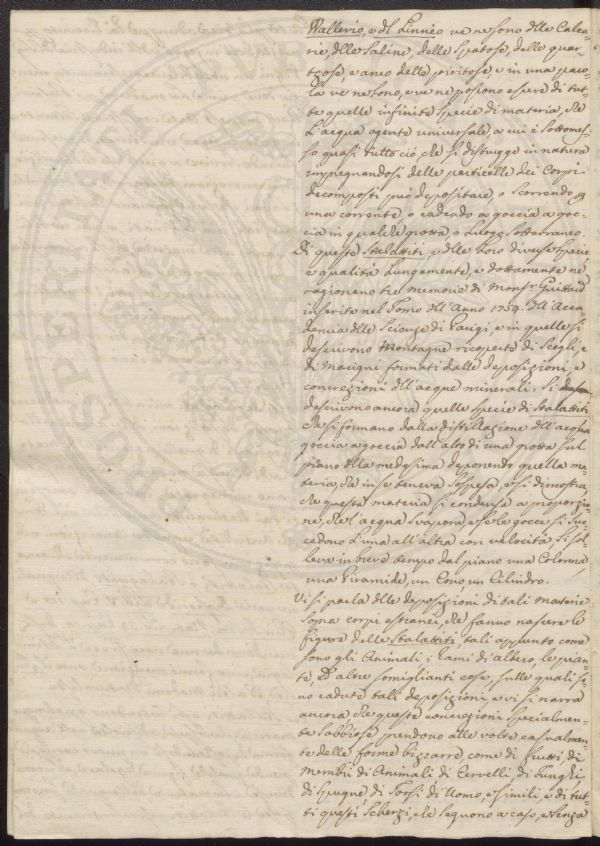 Wallerio, e del Linnèo ve ne sono delle Calca-
rie, delle Saline, delle Spatose, delle quar-
tzose, e anco delle piritose, e in una paro-
la ve ne sono, e ve ne possono essere di tut-
te quelle infinite specie di materia, che
L'acqua agente universale, a cui è sottomes-
so quasi tutto ciò, che si distrugge in natura
impregnandosi delle particelle dei Corpi
decomposti può depositare, o scorrendo
una corrente, o cadendo a goccia a goc-
cia in qualche grotta, o Luogo Sotterraneo.
Di queste Stalattiti, e delle loro diverse specie,
e qualità Lungamente, e dottamente ne
ragionano tre memorie di Monsr Guittard
inserite nel Tomo dell'Anno 1754. dell'Acca-
demia delle Scienze di Parigi, e in quelle si
descrivono Montagne ricoperte di Scogli, e
di Macigni formati dalle deposizioni, e
concrezioni dell'acque minerali. Si
descrivono ancora quelle specie di Stalattiti
che si formano dalla distillazione dell'acqua
goccia a goccia dall'alto di una grotta sul
piano della medesima deponendo quella ma-
teria, che in se teneva sospesa, e si dimostra,
che questa materia si condensa a proporzio-
ne, che l'acqua svapora, e se le gocce si suc-
cedono l'una all'altra con velocità si sol-
leva in breve tempo dal piano una Colonna,
una Piramide, un Cono, un Cilindro.
Vi si parla delle deposizioni di tali materie
sopra corpi estranei, che fanno nascere le
figure delle Stalattiti, tali appunto come
sono gli Animali, i Rami di albero, le pian-
te, ed altre somiglianti cose, sulle quali sie-
no cadute tali deposizioni, e vi si narra
ancora che queste concrezioni specialmen-
te Sabbiose prendono alle volte casualmen-
te delle forme bizzarre, come di frutti, di
membri di Animali, di Cervelli, di funghi,
di Spugne, di Torsi di Uomo, e simili, e di tut-
ti questi Scherzi, che seguono a caso, e senza